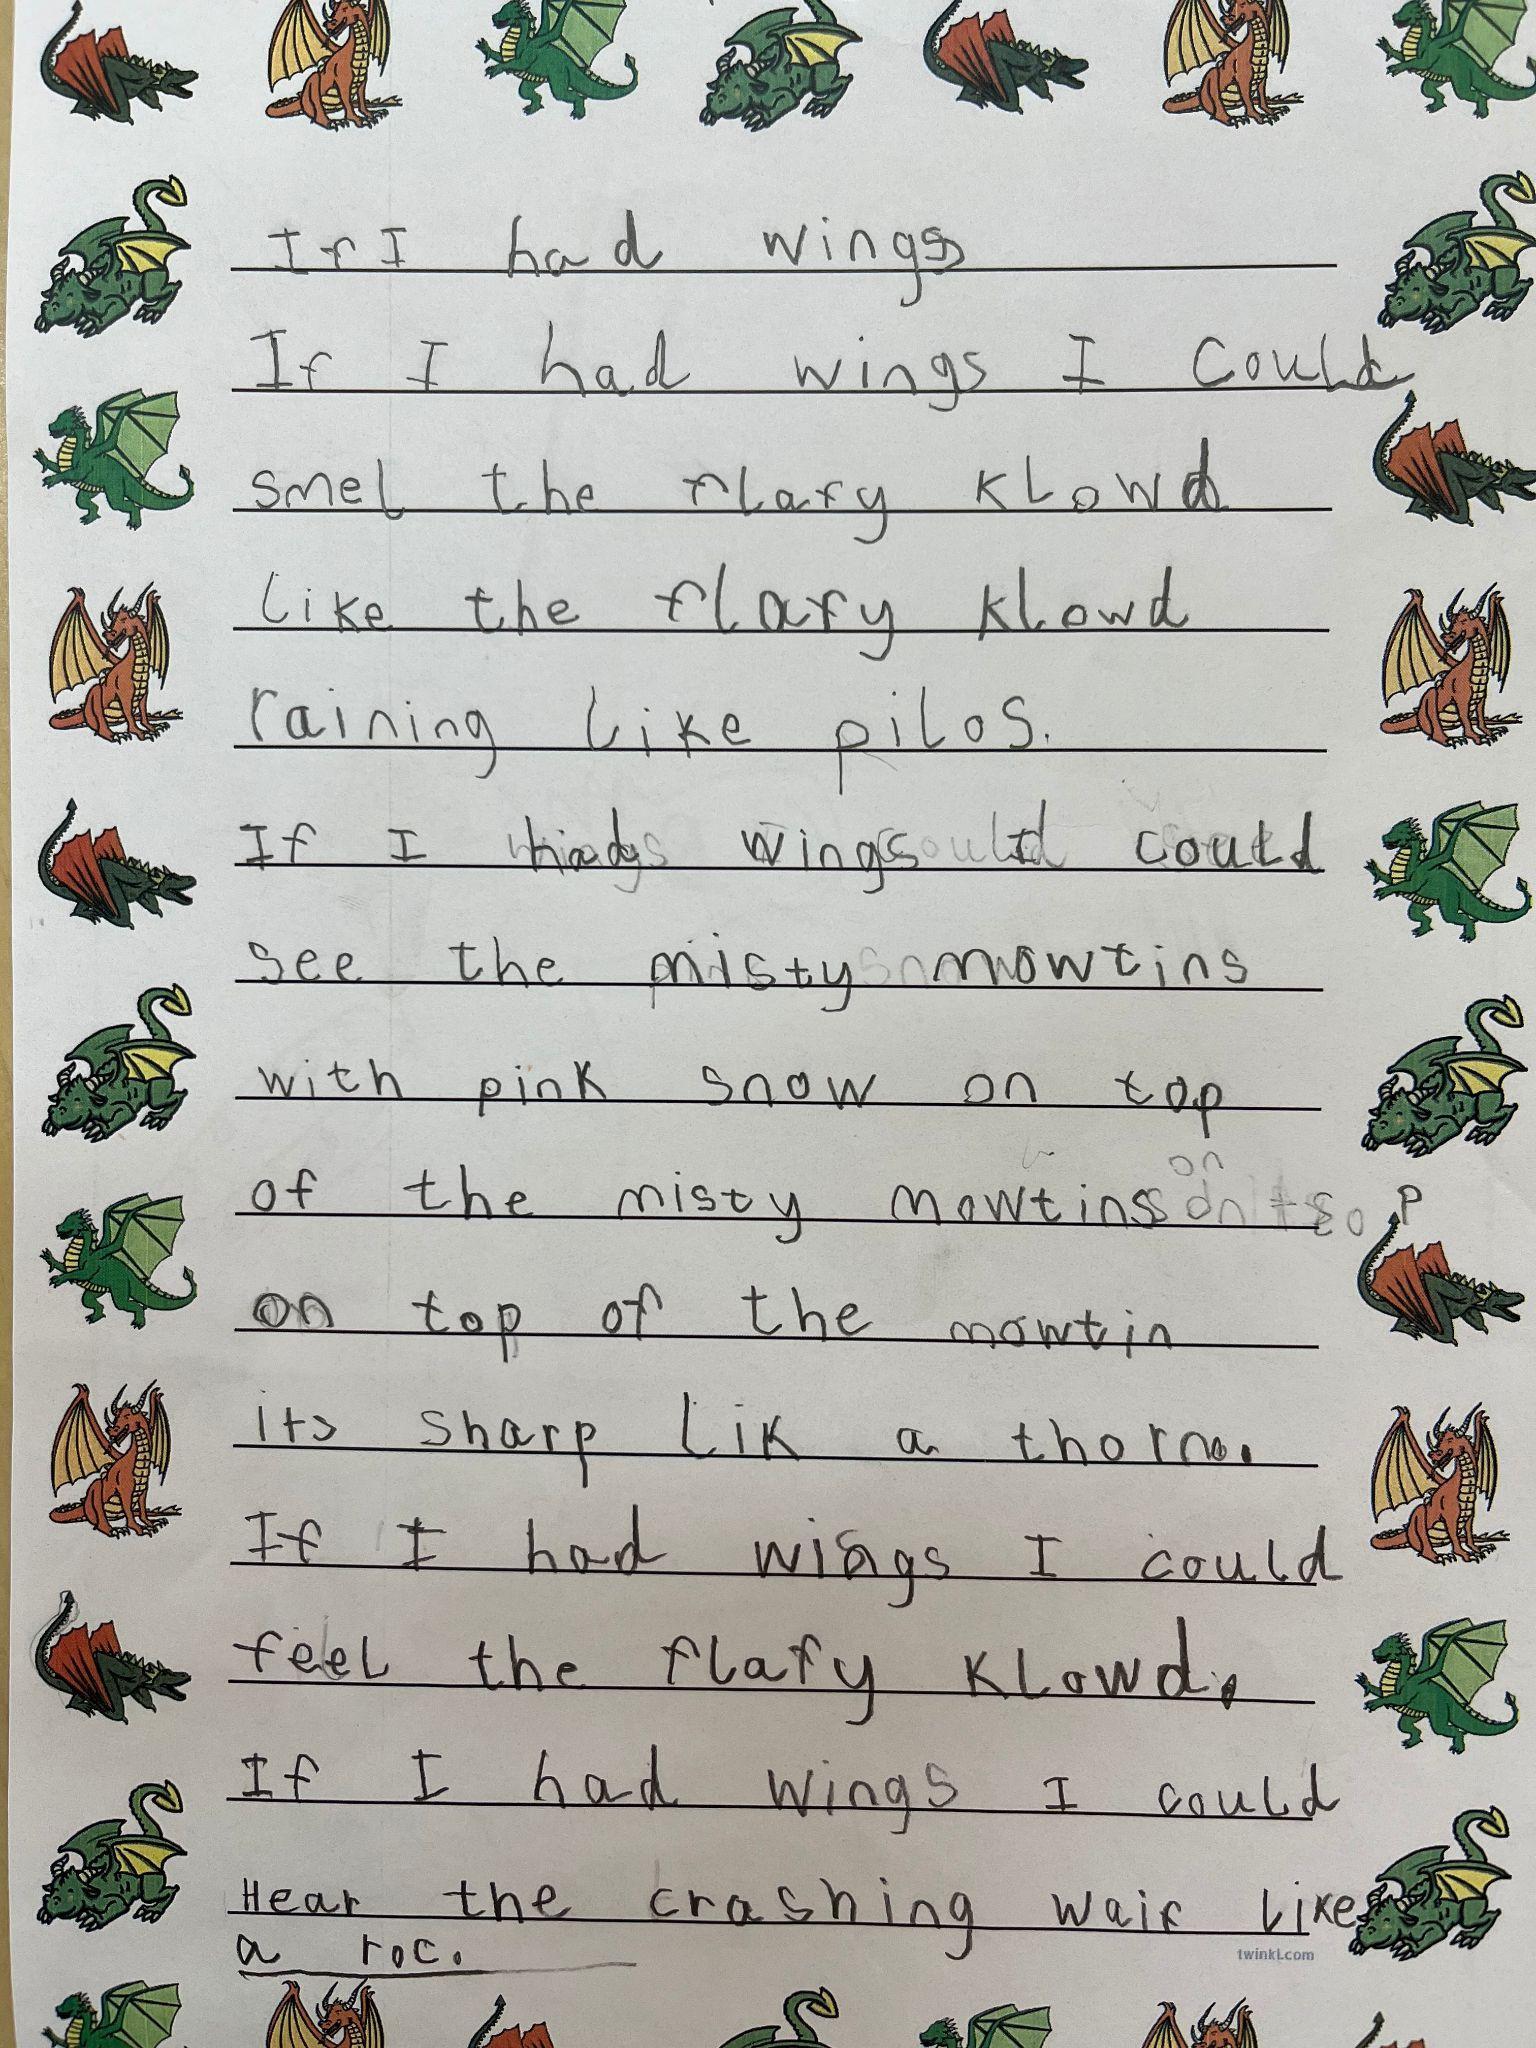 If I had wings
If I had wings I could
smel the flafy klowd
like the flafy klowd
raining like pilos.
If I had wings I could
see the misty mowtins
with pink snow on top
of the misty mowtins
on top of the mowtin
its sharp lik a thorn.
If I had wings I could
feel the flafy klowd.
If I had wings I could
Hear the crashing waif like
a roc.
twinkl.com